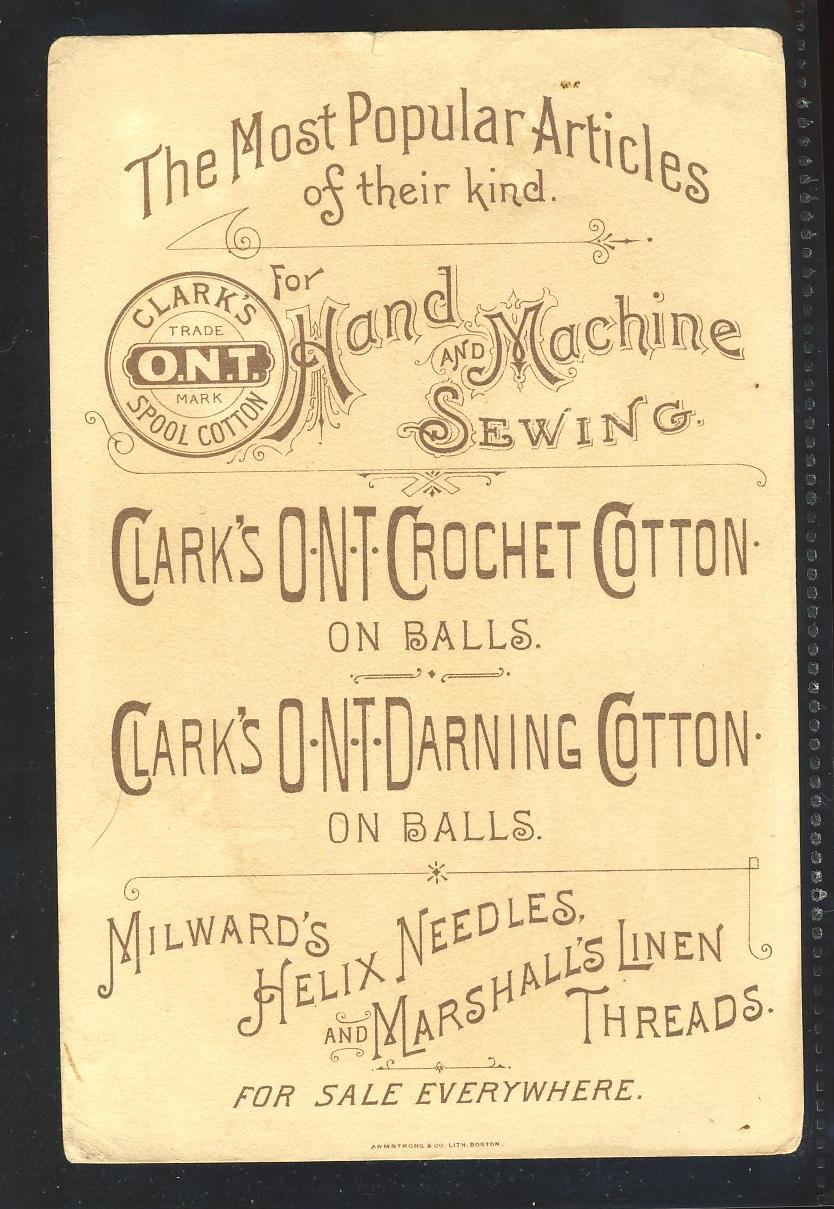 The Most Popular Articles
of their kind.
CLARK'S
TRADE
O.N.T.
MARK
SPOOL COTTON
For
Hand AND Machine
SEWING.
CLARK'S O·N·T· CROCHET COTTON·
ON BALLS.
CLARK'S O·N·T· DARNING COTTON·
ON BALLS.
MILWARD'S
HELIX NEEDLES,
AND MARSHALL'S LINEN
THREADS.
FOR SALE EVERYWHERE.
ARMSTRONG & CO. LITH. BOSTON.